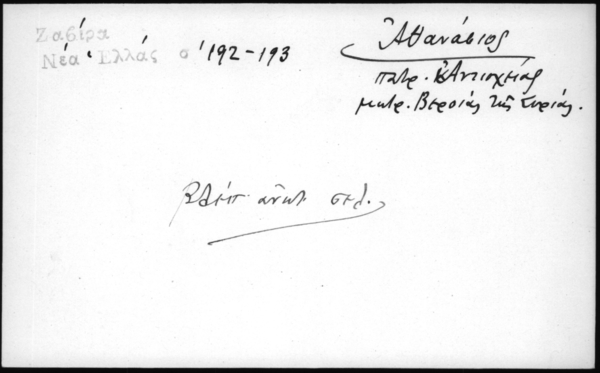 Ζαβίρα
Νέα Ἑλλάς σ' 192-193
Ἀθανάσιος
πατρ. Ἀντιοχείας
μητρ. Βεροίας τῆς Συρίας.
Βλέπ. ἀνωτ. σελ.